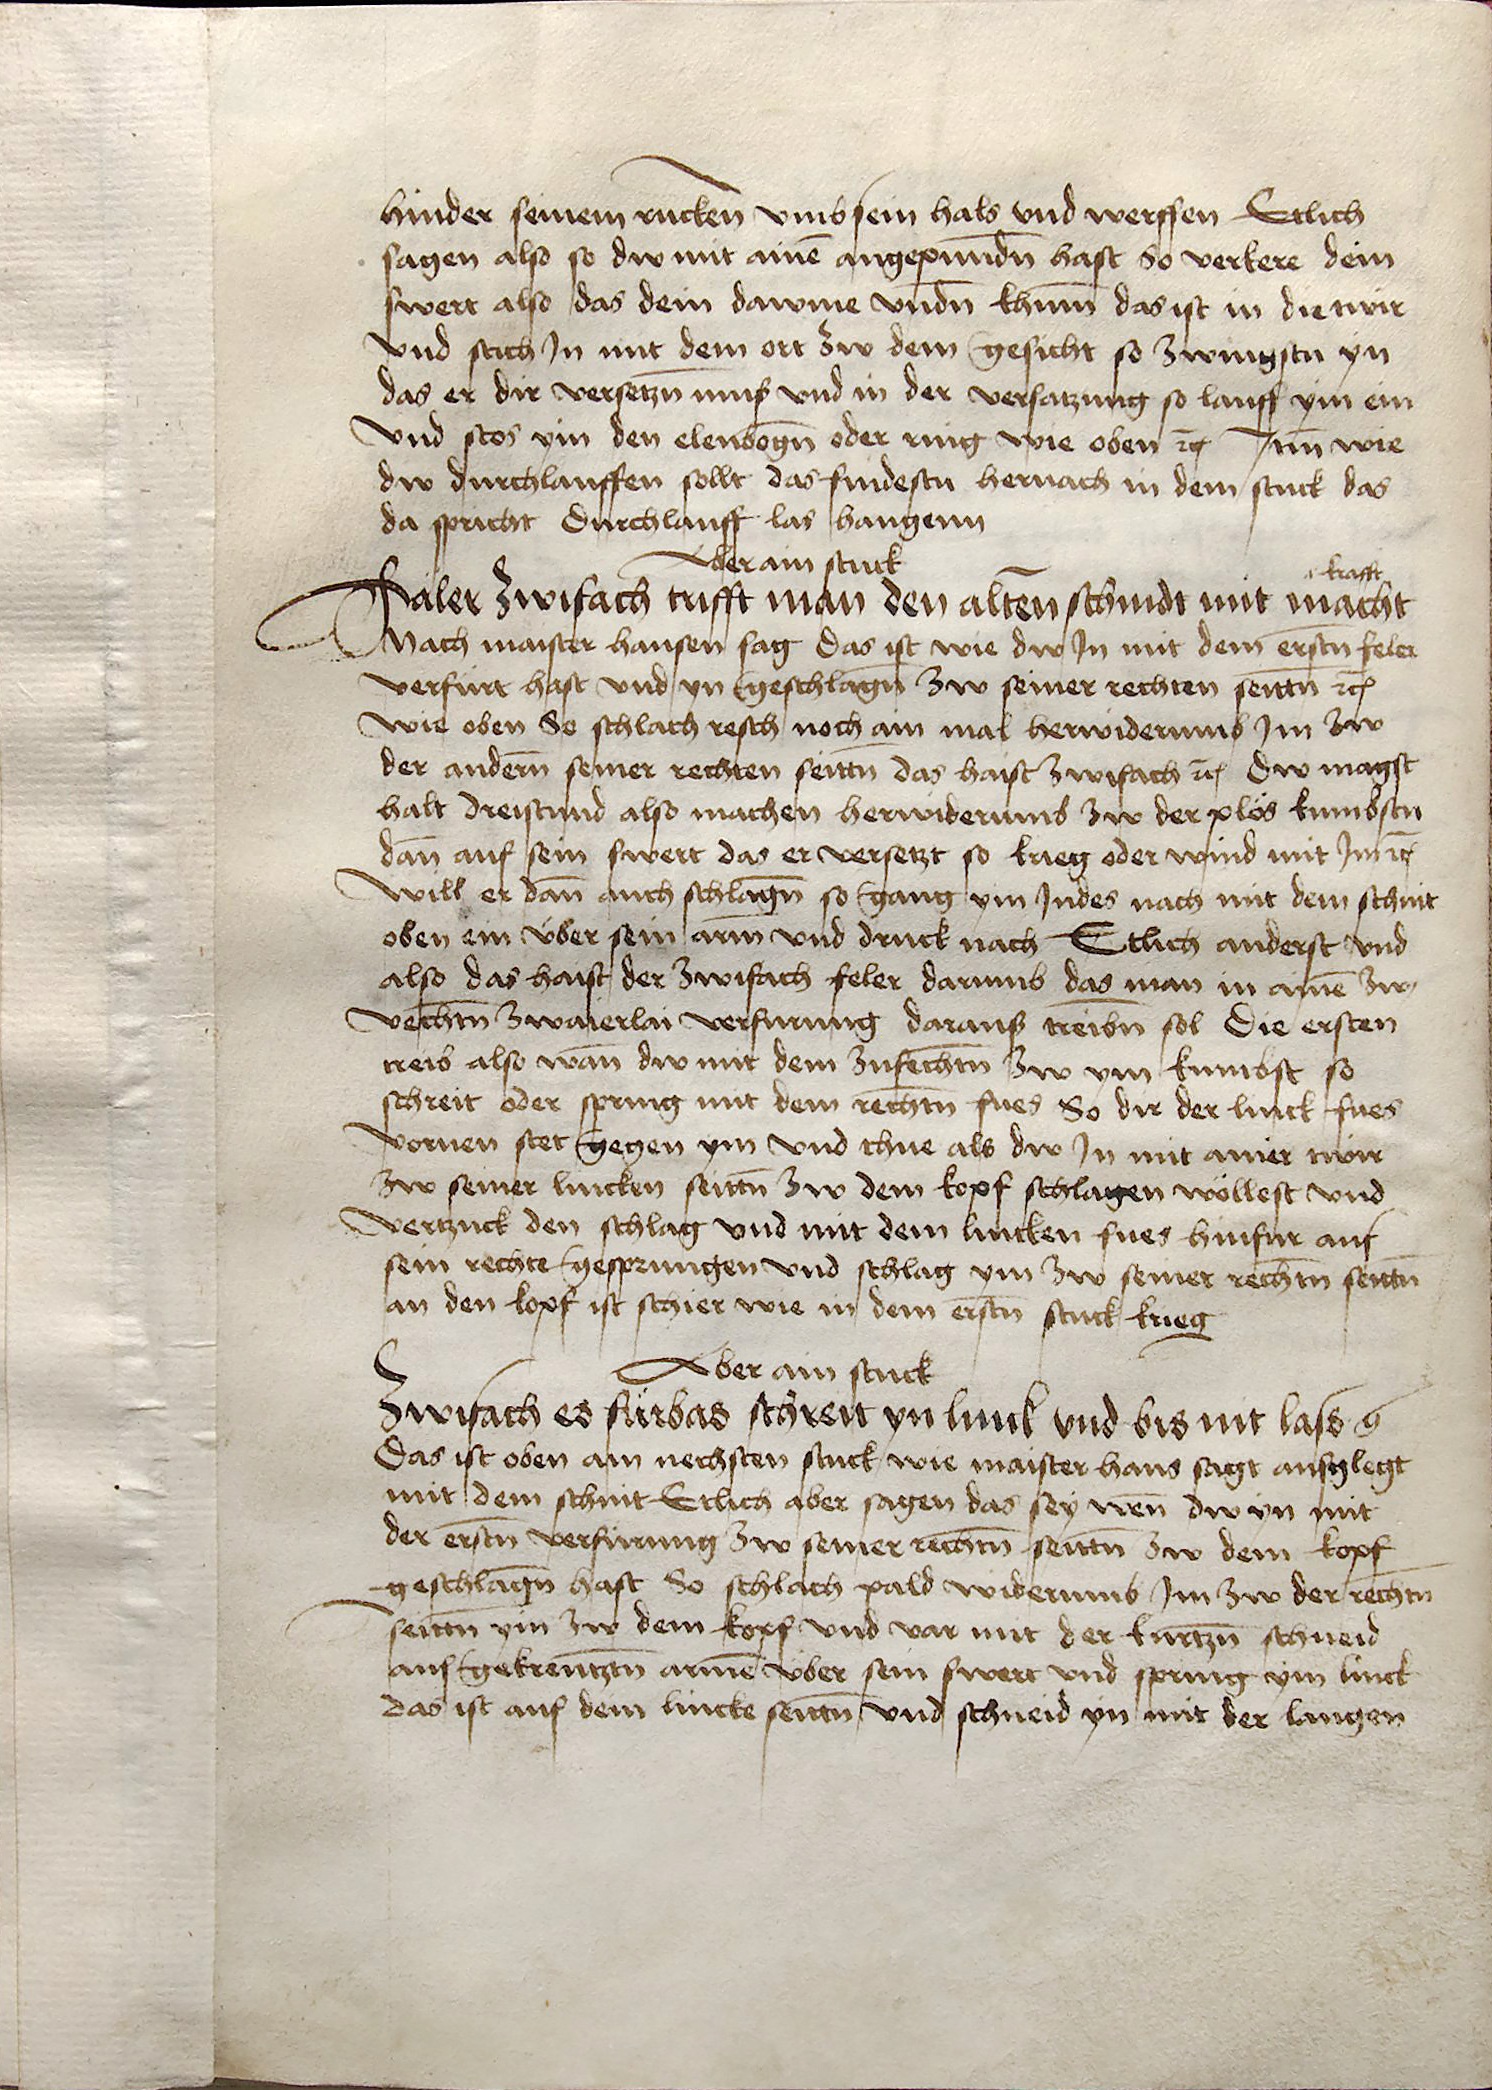 hinder seinem rucken vmb sein hals vnd werffen Etlich
sagen also so dw mit ainē angepundn̄ hast So verkere dein
swert also das dein dawme vndn̄ khum̄ das ist in die twir
vnd stich Jn mit dem ort zw dem gesicht so zwingstu yn
das er dir versetzn̄ mus vnd in der versatzung so lauff ym ein
vnd stos ym den elenbogn̄ oder ring wie oben rc̄ Jtm̄ wie
dw durchlauffen sollt das findestu hernach in dem stuck das
da spricht Durchlauff las hangenn
Aber ain stuck
krafft
Faler zwifach trifft man den alten̄ schnidt mit macht
Nach maister hansen sag Das ist wie dw Jn mit dem erstn̄ feler
verfürt hast vnd yn geschlagn̄ zw seiner rechten seittn̄ rc̄
wie oben So schlach resch noch ain mal herwiderumb Jm zw
der andern̄ seiner rechten seittn̄ das haist zwifach rc̄ Dw magst
halt dreistund also machen herwiderumb zw der plös kumbstu
dan̄ auf sein swert das er versetzt so krieg oder wind mit Jm rc̄
Will er dan̄ auch schlagn̄ so gang ym Jndes nach mit dem schnit
oben ein über sein arm̄ vnd druck nach Etlich anderst vnd
also das haist der zwifach feler darumb das man in ainē zw
vechtn̄ zwaierlai verfurung daraus treibn̄ sol Die ersten
treib also wan̄ dw mit dem zufechtn̄ zw ym kumbst so
schreit oder spring mit dem rechtn̄ fues So dir der linck fues
vornen stet gegen ym vnd thue als dw Jn mit ainer twir
zw seiner lincken seittn̄ zw dem kopf schlagen wöllest vnd
vertzuck den schlag vnd mit dem lincken fues hinfur auf
sein rechte gesprungen vnd schlag ym zw seiner rechtn̄ seittn̄
an den kopf ist schier wie in dem erstn̄ stuck krieg
Aber ain stuck
Zwifach es fürbas schreit yn linck vnd bis nit lass
Das ist oben am nechsten stuck wie maister hans sagt ausglegt
mit dem schnit Etlich aber sagen das sey wen̄ dw yn mit
der erstn̄ verfürung zw seiner rechtn̄ seittn̄ zw dem kopf
geschlagn̄ hast So schlach pald widerumb Jm zw der rechtn̄
seittn̄ ym zw dem kopf vnd var mit der kurtzn̄ schneid
auf gekreutztn̄ armē über sein swert vnd spring ym linck
das ist auf dem lincke seittn̄ vnd schneid yn mit der langen